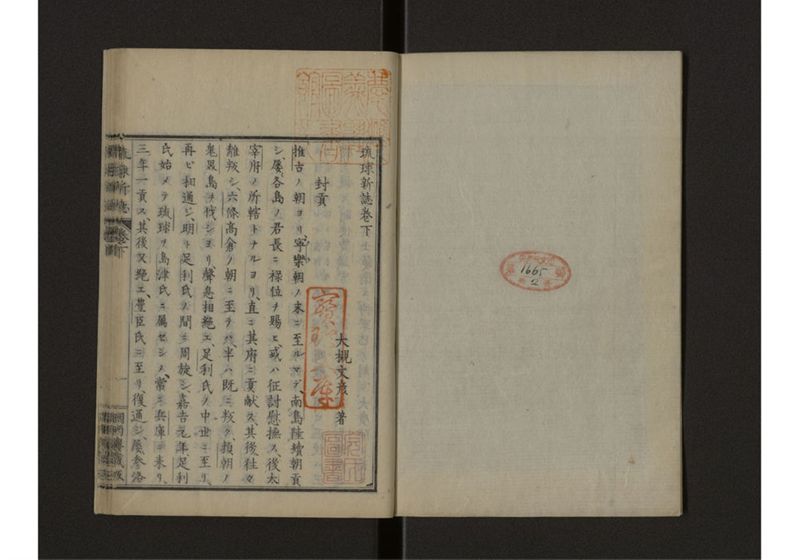 琉球新誌巻下
大槻文彦 著
封貢
推古ノ朝ヨリ寧樂朝ノ末ニ至ルマデ、南島陸續朝貢
シ、屡各島ノ君長ニ禄位ヲ賜ヒ、或ハ征討慰撫ス、後太
宰府ノ所轄トナルヨリ、直ニ其府ニ貢献ス、其後往々
離叛シ、六條高倉ノ朝ニ至テハ、半ハ既ニ叛ク、頼朝ノ
鬼界島ヲ伐シヨリ、聲息相絶エ、足利氏ノ中世ニ至リ、
再ヒ相通シ、明ト足利氏ノ間ニ周旋シ、嘉吉元年足利
氏始メテ琉球ヲ島津氏ニ属セシメ、常ニ兵庫ニ来リ、
三年一貢ス、其後又絶エ、豊臣氏ニ至リ復通シ、屡参洛
琉球新誌 巻下
1665
2